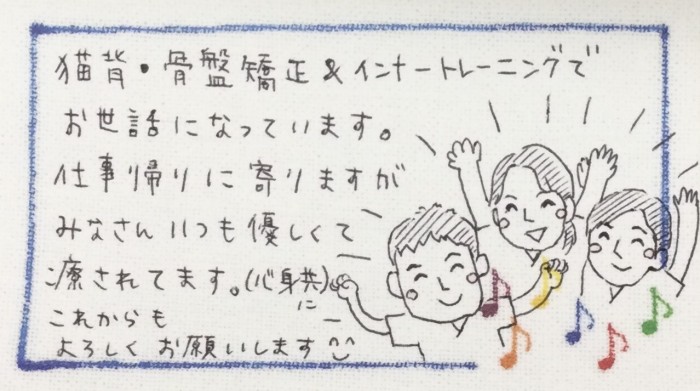 猫背・骨盤矯正&インナートレーニングで
お世話になっています。
仕事帰りに寄りますが
みなさんいつも優しくて
癒されてます。(心身共に)
これからも
よろしくお願いします